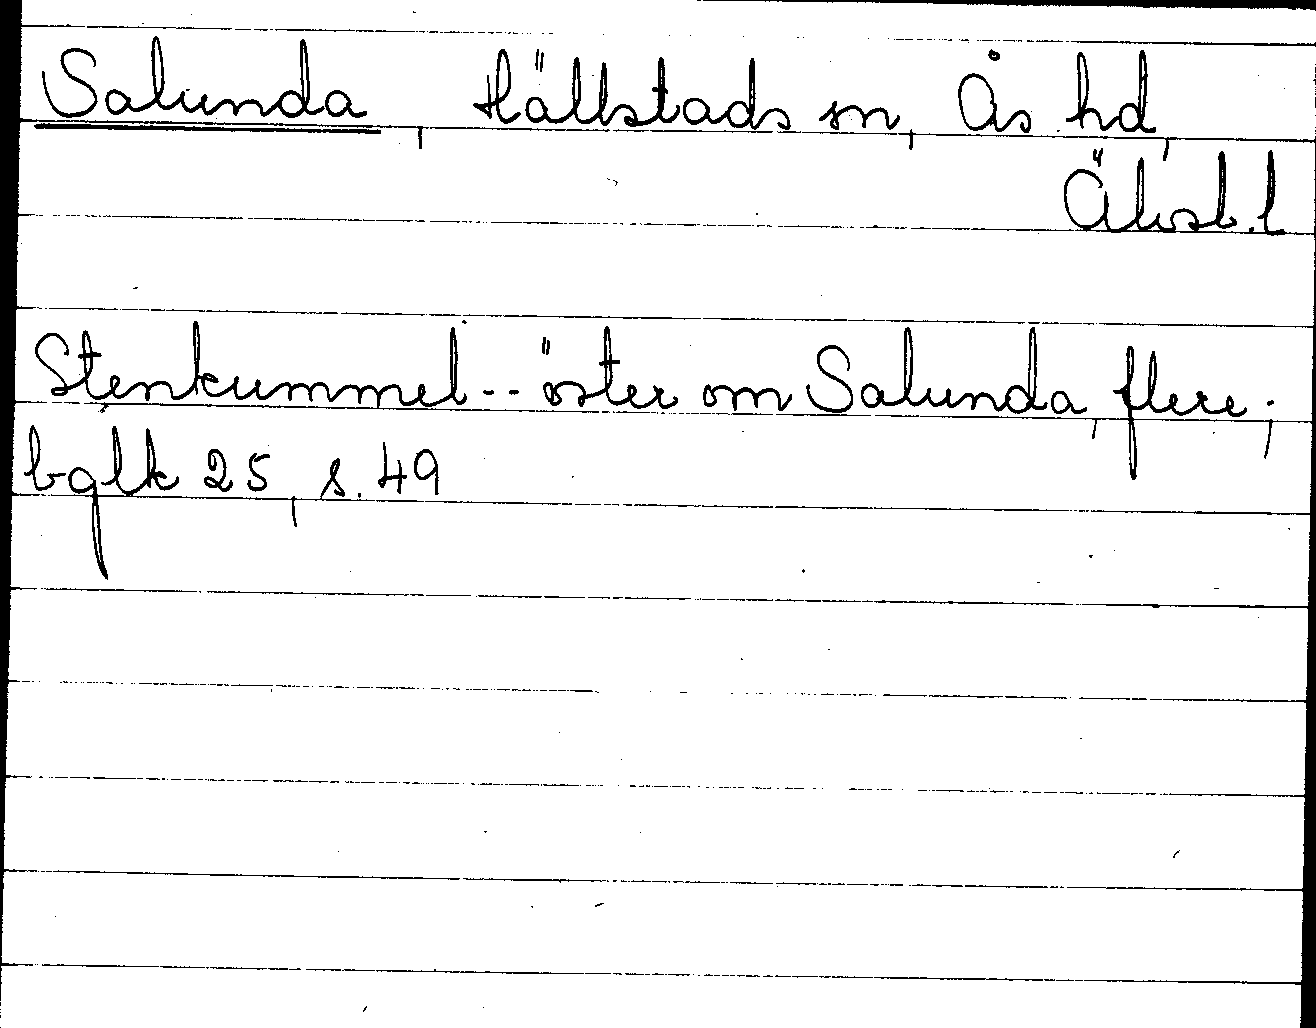 Salunda, Hällstads sn, Ås hd,
Älvsb. l
Stenkummel -- öster om Salunda, flere;
bglk 25, s. 49